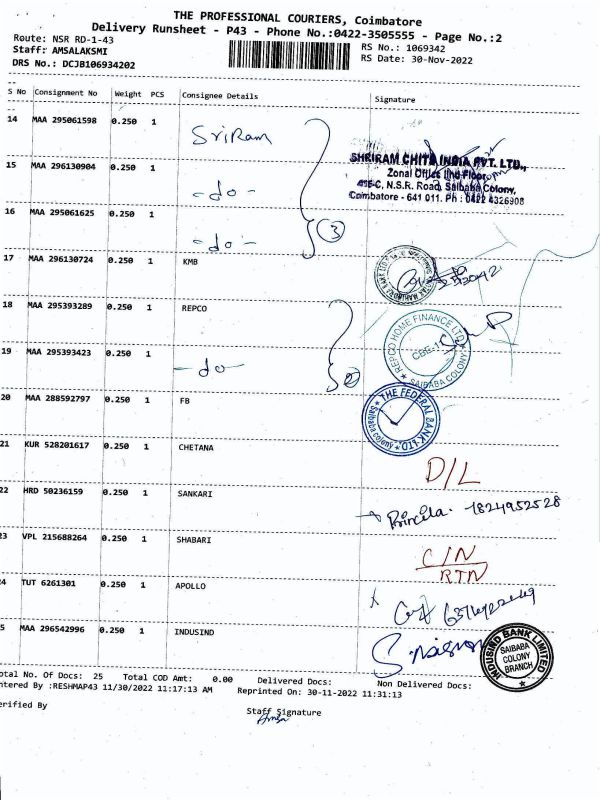 THE PROFESSIONAL COURIERS, Coimbatore
Delivery Runsheet - P43 - Phone No.:0422-3505555 - Page No.:2
Route: NSR RD-1-43
RS No.: 1069342
Staff: AMSALAKSMI
RS Date: 30-Nov-2022
DRS No.: DCJB106934202
S No Consignment No Weight PCS Consignee Details Signature
14 MAA 295061598 0.250 1 SriRam
SHRIRAM CHITS INDIA PVT. LTD.,
Zonal Office IInd Floor,
C, N.S.R. Road, Saibaba Colony,
Coimbatore - 641 011. Ph : 0422 4326908
15 MAA 296130904 0.250 1 -do-
16 MAA 295061625 0.250 1 -do- 3
17 MAA 296130724 0.250 1 KMB
18 MAA 295393289 0.250 1 REPCO
REPCO HOME FINANCE LTD
CBE-1
SAIBABA COLONY
19 MAA 295393423 0.250 1 -do- 2
20 MAA 288592797 0.250 1 FB
THE FEDERAL BANK LTD
Saibaba colony
21 KUR 528201617 0.250 1 CHETANA D/L
22 HRD 50236159 0.250 1 SANKARI Princila. 1824952528
23 VPL 215688264 0.250 1 SHABARI C/N
RTN
24 TUT 6261301 0.250 1 APOLLO
25 MAA 296542996 0.250 1 INDUSIND
INDUSIND BANK LIMITED
SAIBABA
COLONY
BRANCH
otal No. Of Docs: 25 Total COD Amt: 0.00 Delivered Docs: Non Delivered Docs:
ntered By :RESHMAP43 11/30/2022 11:17:13 AM Reprinted On: 30-11-2022 11:31:13
erified By
Staff Signature
Amsa